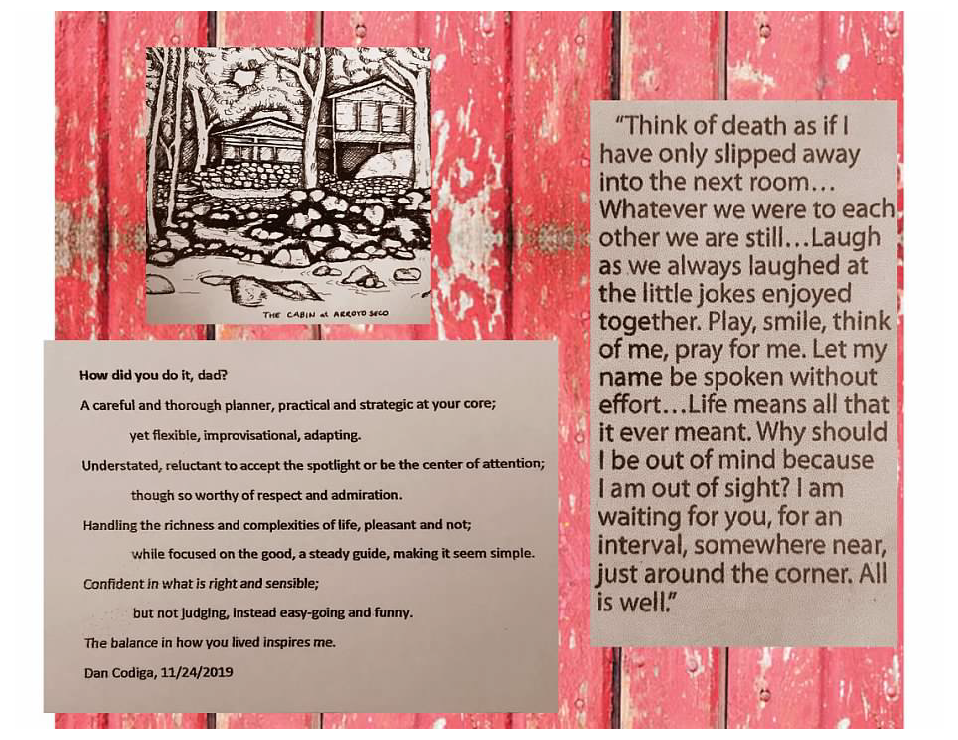 THE CABIN at ARROYO SECO
How did you do it, dad?
A careful and thorough planner, practical and strategic at your core;
yet flexible, improvisational, adapting.
Understated, reluctant to accept the spotlight or be the center of attention;
though so worthy of respect and admiration.
Handling the richness and complexities of life, pleasant and not;
while focused on the good, a steady guide, making it seem simple.
Confident in what is right and sensible;
but not judging, instead easy-going and funny.
The balance in how you lived inspires me.
Dan Codiga, 11/24/2019
“Think of death as if I
have only slipped away
into the next room...
Whatever we were to each
other we are still...Laugh
as we always laughed at
the little jokes enjoyed
together. Play, smile, think
of me, pray for me. Let my
name be spoken without
effort...Life means all that
it ever meant. Why should
I be out of mind because
I am out of sight? I am
waiting for you, for an
interval, somewhere near,
just around the corner. All
is well.”